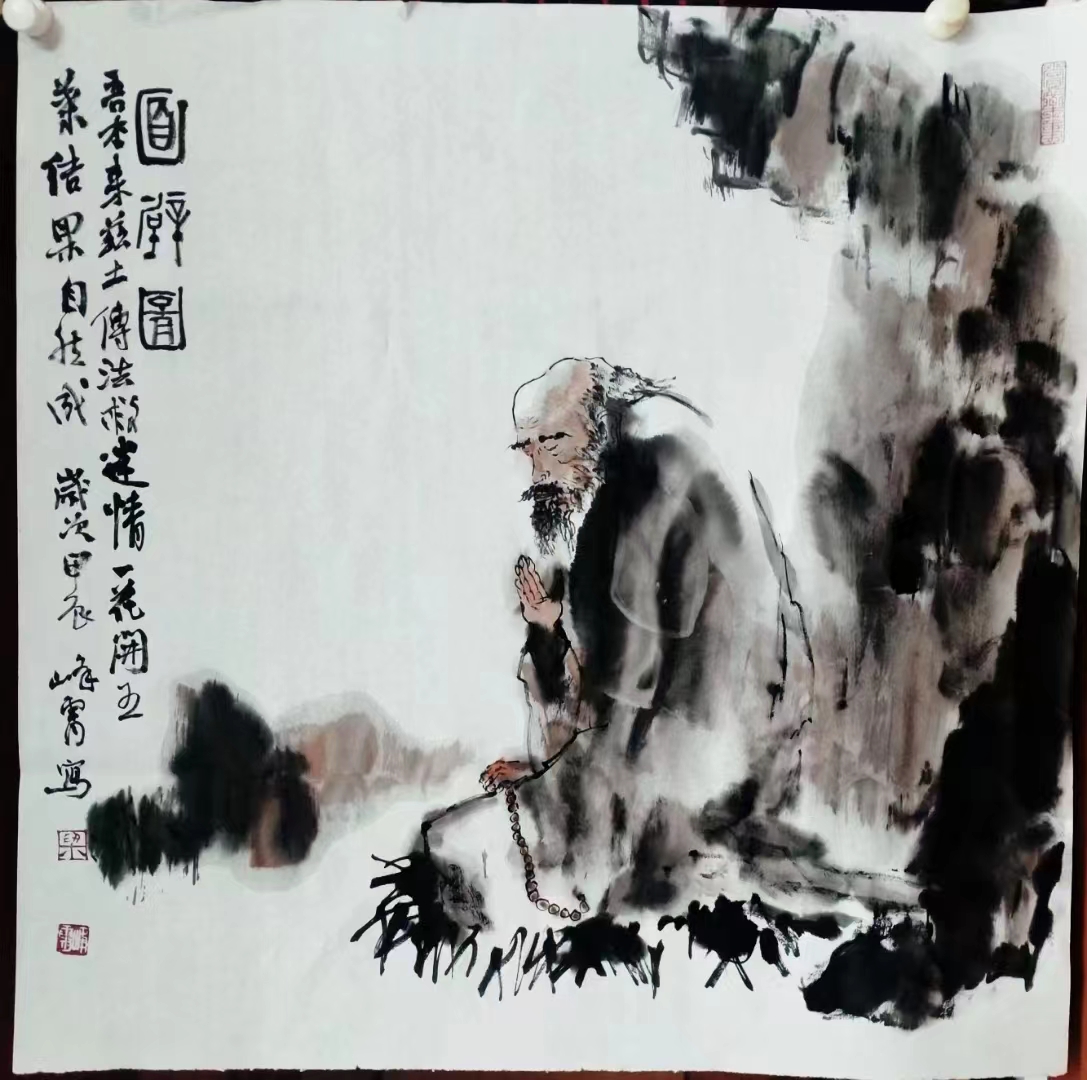 面壁图
吾本来兹土傳法救迷情一花開五
葉結果自然成 歲次甲辰 峰霄寫
梁